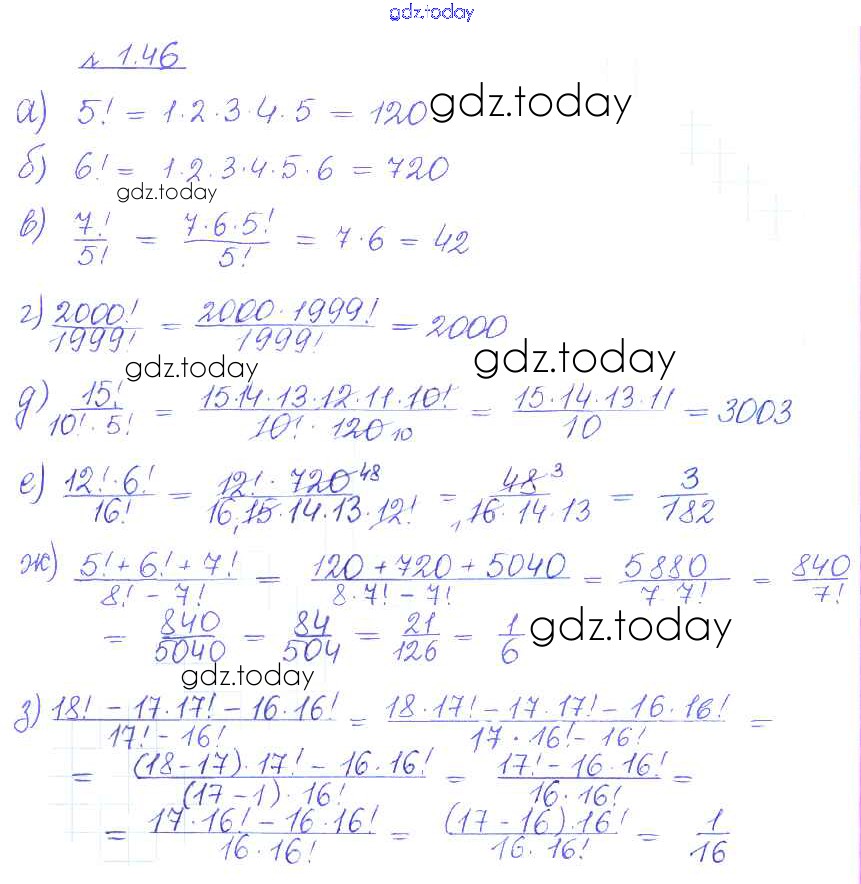 gdz.today
№ 1.46
а) 5! = 1·2·3·4·5 = 120 gdz.today
б) 6! = 1·2·3·4·5·6 = 720
gdz.today
в) 7!/5! = 7·6·5!/5! = 7·6 = 42
г) 2000!/1999! = 2000·1999!/1999! = 2000
gdz.today gdz.today
д) 15!/10!·5! = 15·14·13·12·11·10!/10!·120 10 = 15·14·13·11/10 = 3003
е) 12!·6!/16! = 12!·720 48/16·15·14·13·12! = 48 3/1 16·14·13 = 3/182
ж) 5!+6!+7!/8!-7! = 120+720+5040/8·7!-7! = 5880/7·7! = 840/7!
= 840/5040 = 84/504 = 21/126 = 1/6 gdz.today
gdz.today
з) 18!-17·17!-16·16!/17!-16! = 18·17!-17·17!-16·16!/17·16!-16! =
= (18-17)·17!-16·16!/(17-1)·16! = 17!-16·16!/16·16! =
= 17·16!-16·16!/16·16! = (17-16)·16!/16·16! = 1/16